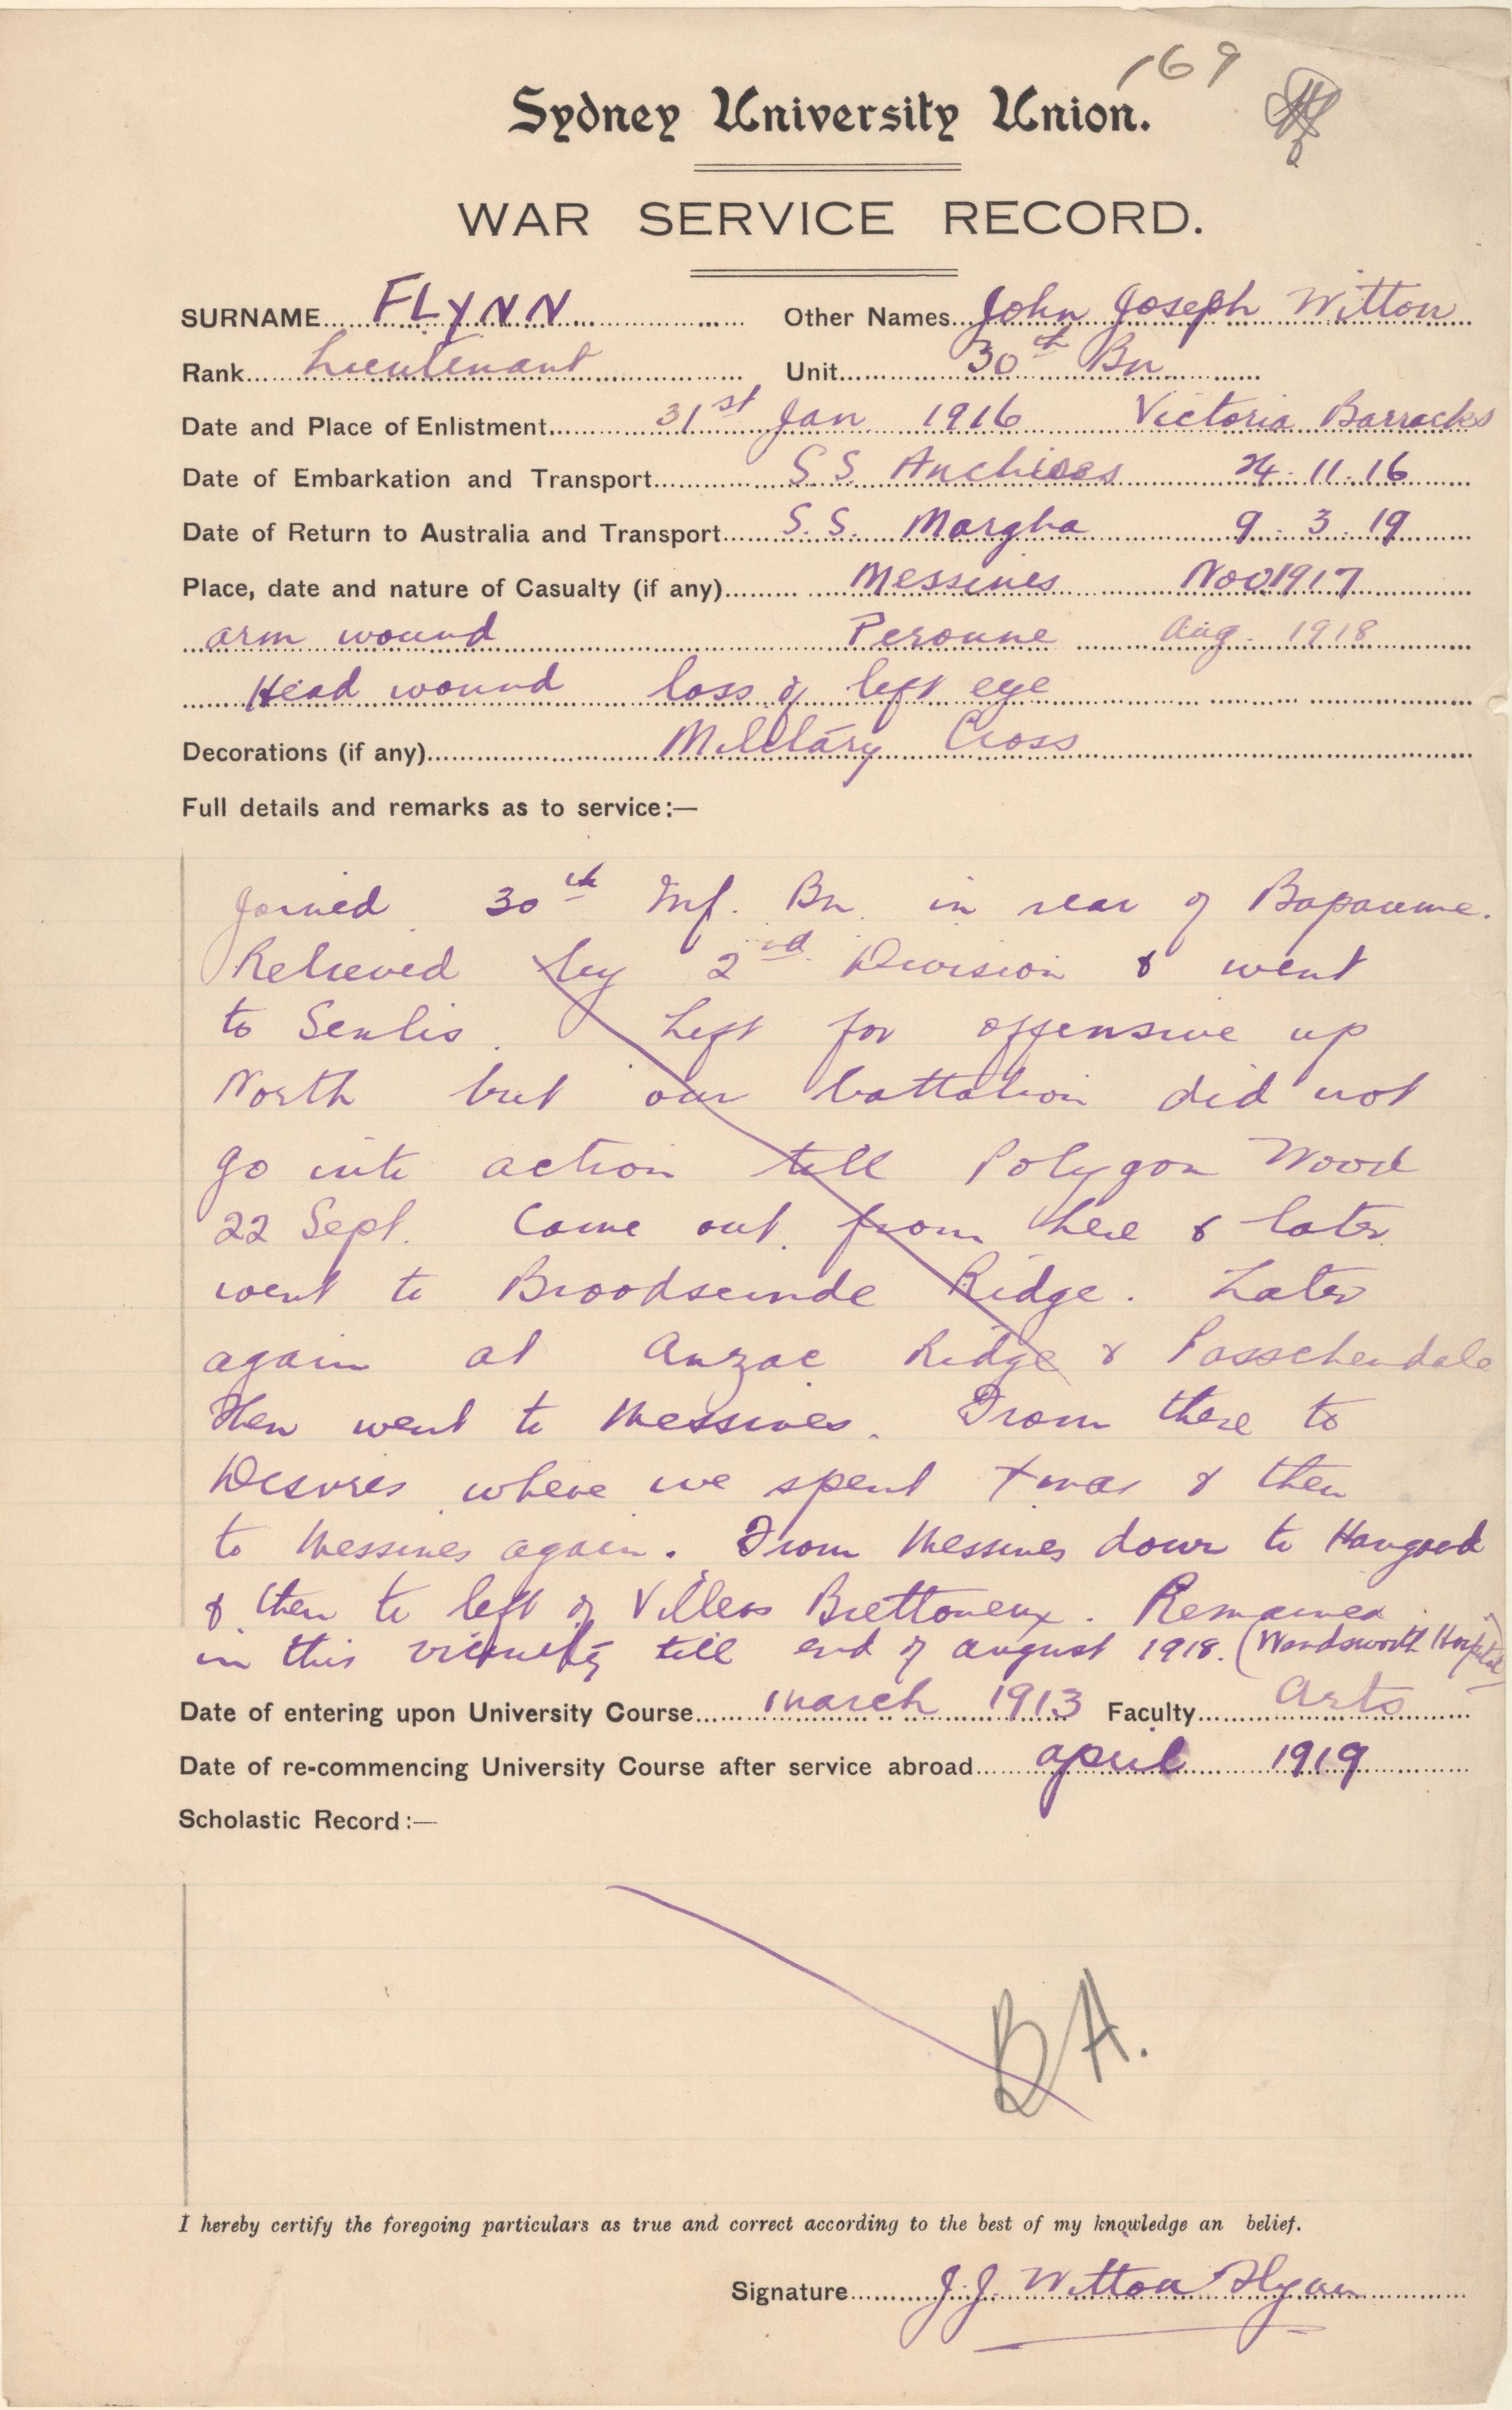 169
Sydney University Union.
WAR SERVICE RECORD.
SURNAME FLYNN Other Names John Joseph Witton
Rank Lieutenant Unit 30th Bn
Date and Place of Enlistment 31st Jan 1916 Victoria Barracks
Date of Embarkation and Transport S.S. Anchises 24.11.16
Date of Return to Australia and Transport S.S. Margha 9.3.19
Place, date and nature of Casualty (if any) Messines Nov 1917
arm wound Peronne Aug. 1918
Head wound loss of left eye
Decorations (if any) Military Cross
Full details and remarks as to service:—
Joined 30th Inf. Bn. in rear of Bapaume.
Relieved by 2nd Division & went
to Senlis. Left for offensive up
North but our battalion did not
go into action till Polygon Wood
22 Sept. Came out from here & later
went to Broodseinde Ridge. Later
again at Anzac Ridge & Passchendale
Then went to Messines. From there to
Desvres where we spent Xmas & then
to Messines again. From Messines down to Hangood
& then to left of Villers Brettoneux. Remained
in this vicinity till end of august 1918. (Wandsworth Hospital)
Date of entering upon University Course march 1913 Faculty Arts
Date of re-commencing University Course after service abroad april 1919
Scholastic Record:—
B A.
I hereby certify the foregoing particulars as true and correct according to the best of my knowledge an belief.
Signature J.J. Witton Flynn